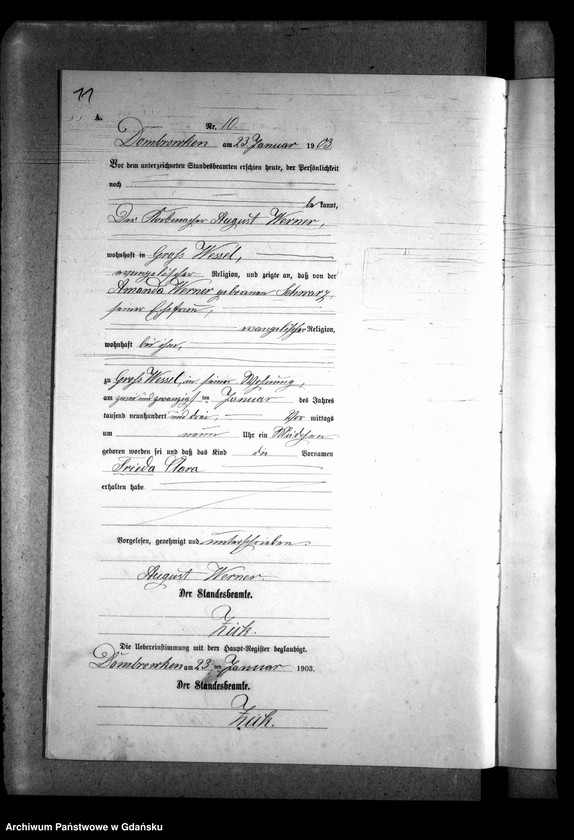 11
A.
Nr. 10.
Dombrowken am 23 Januar 1903
Vor dem unterzeichneten Standesbeamten erschien heute, der Persönlichkeit
nach
be kannt,
Der Korbmacher August Werner,
wohnhaft in Groß Wessel,
evangelischer Religion, und zeigte an, daß von der
Amanda Werner geborenen Schwarz,
seiner Ehefrau,
evangelischer Religion,
wohnhaft bei ihm,
zu Groß Wessel, in seiner Wohnung,
am zwei und zwanzigsten Januar des Jahres
tausend neunhundert und drei, Vor mittags
um neun Uhr ein Mädchen
geboren worden sei und daß das Kind die Vornamen
Frieda Clara
erhalten habe
Vorgelesen, genehmigt und unterschrieben.
August Werner
Der Standesbeamte.
Die Uebereinstimmung mit dem Haupt-Register beglaubigt.
Dombrowken am 23 ten Januar 1903.
Der Standesbeamte.
Archiwum Państwowe w Gdańsku